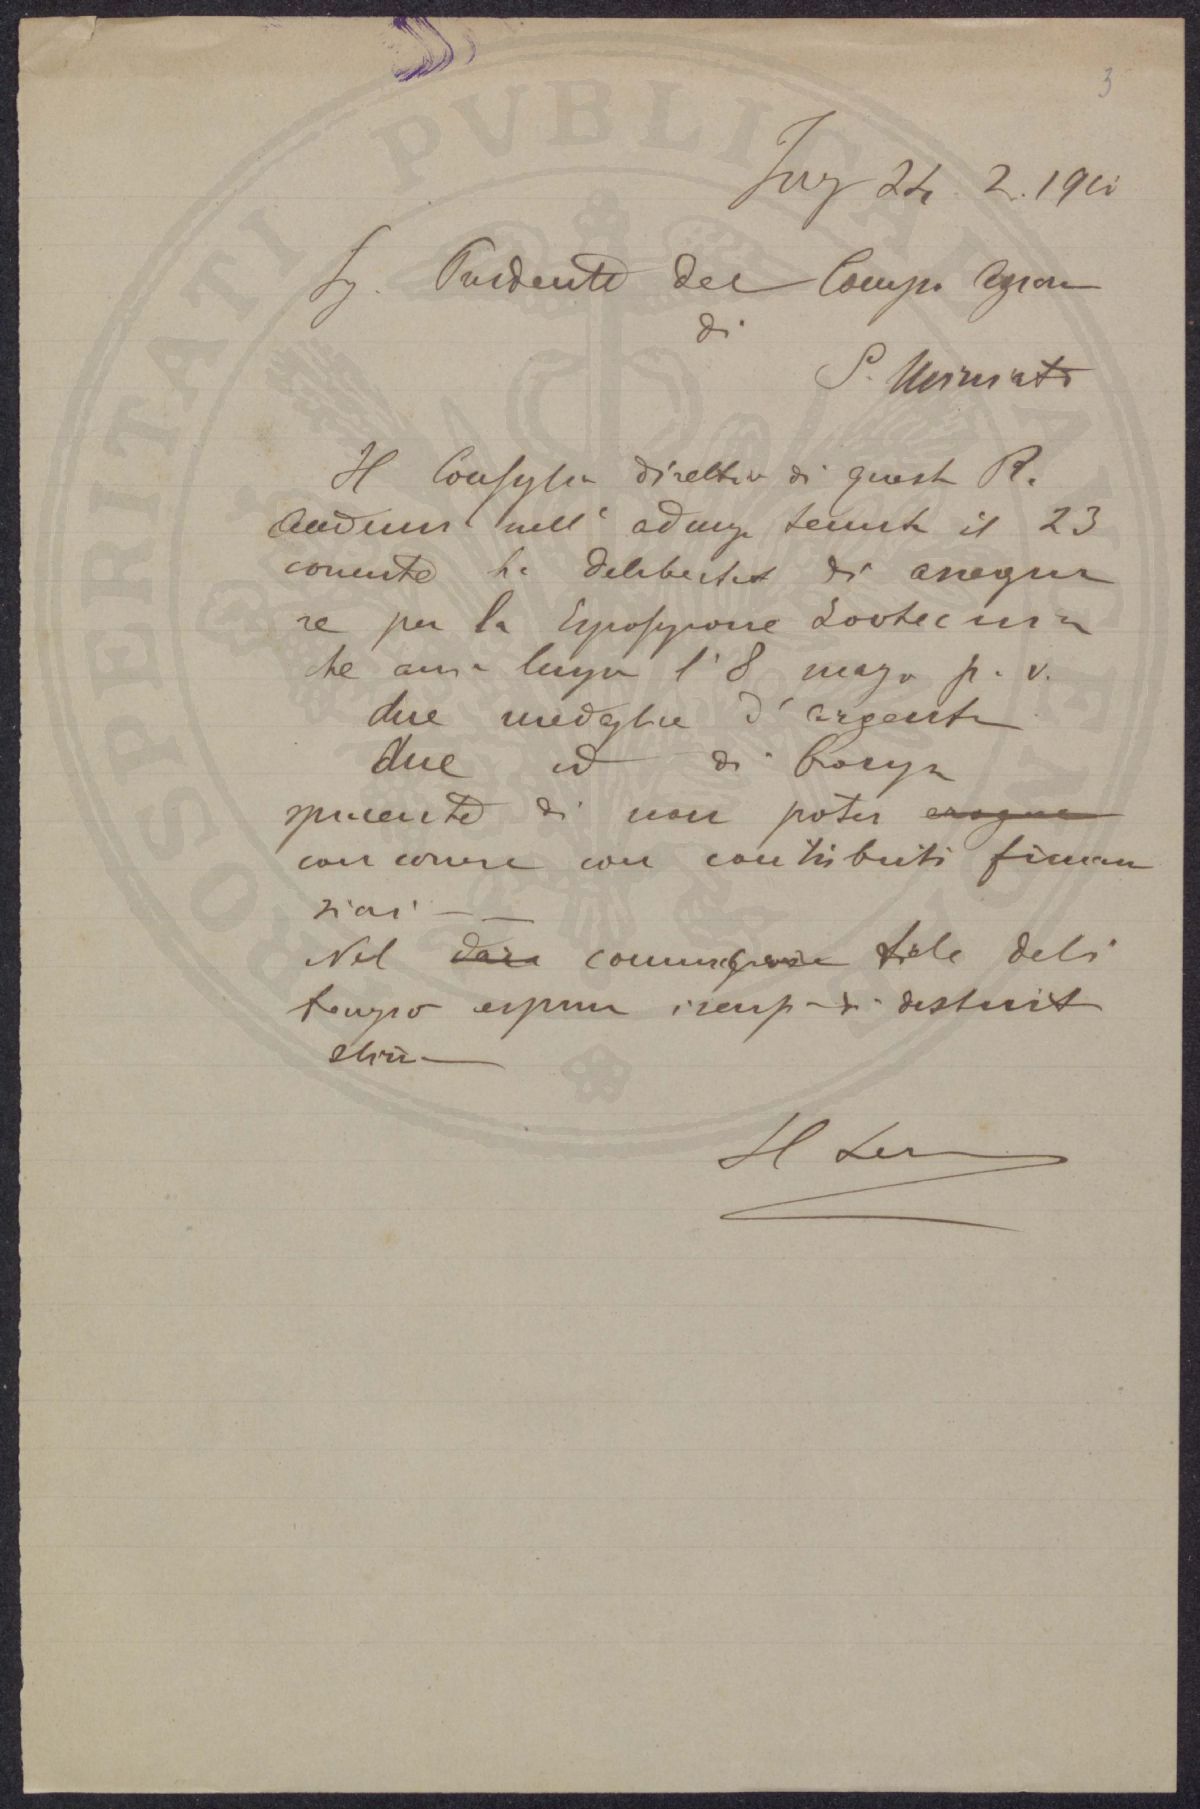 3
24. 2. 191
Sg. Presidente del Comizo Agrar
di
S. Miniato
Il Consiglio direttivo di questa R.
Accademia nell' adunz tenuta il 23
corrente ha deliberato di assegna
re per la Esposizione Zootecnica
che avrà luogo l' 8 magg. p. v.
due medaglie d' argento
due id di bronzo
spiacente di non poter erogare
concorrere con contributi finan
ziari
Nel dare comunicazione tale deli
di distint
stima
Il
PROSPERITATI PVBLICAE AVGENDAE